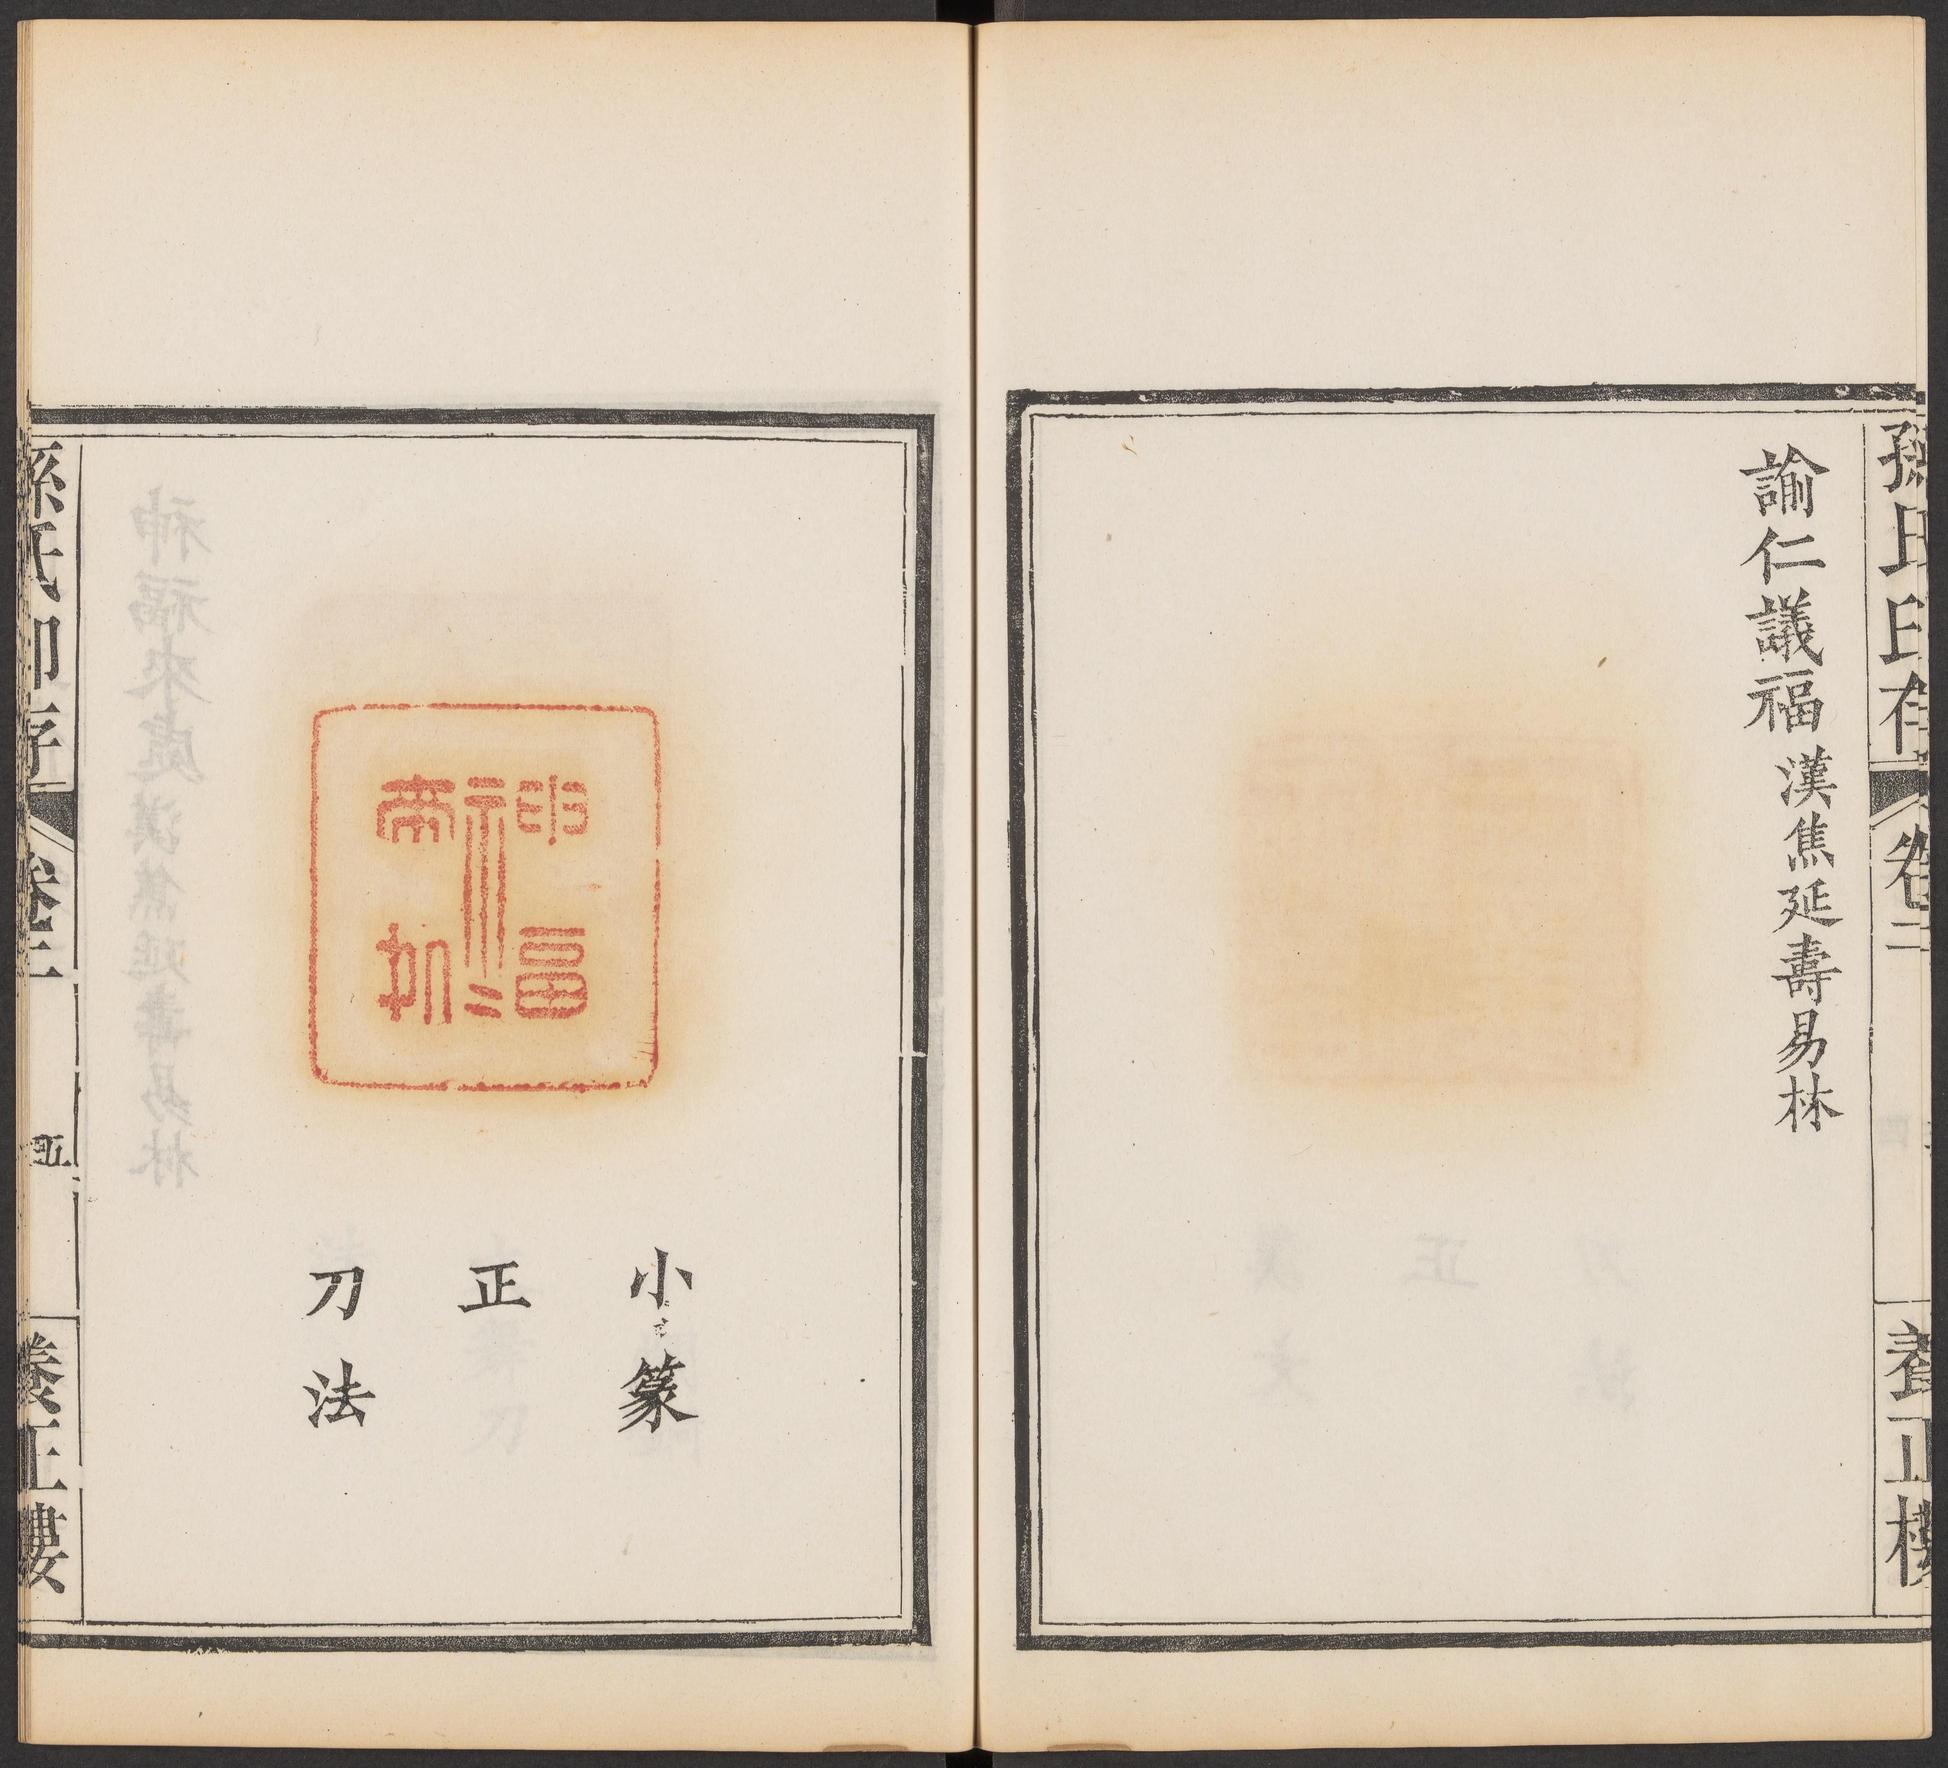 孫氏印存 卷二 養正樓
諭仁議福 漢焦延壽易林
神福來處
小篆
正
刀法
孫氏印存 卷二 五 養正樓